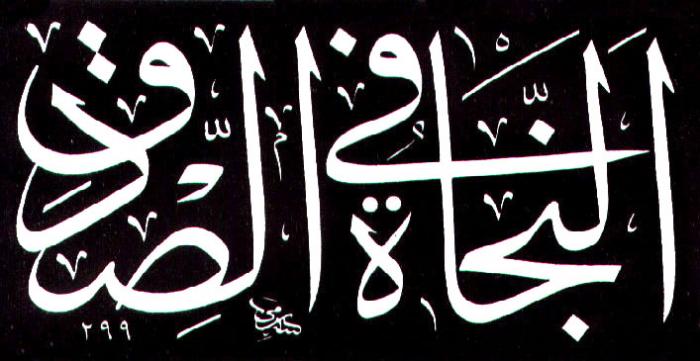 النَّجَاةُ فِي الصِّدْقِ
٢٩٩